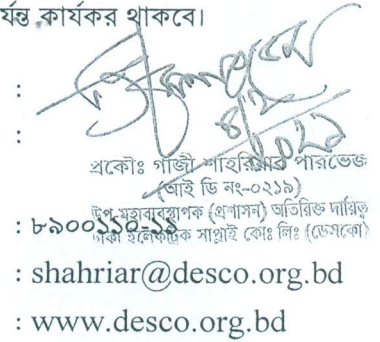 র্যন্ত কার্যকর থাকবে।
:
:
প্রকৌঃ গাজী শাহরিয়ার পারভেজ
(আই ডি নং-০২১৯)
উপ-মহাব্যবস্থাপক (প্রশাসন) অতিরিক্ত দায়িত্ব
: ৮৯০০১১০-১১
ঢাকা ইলেকট্রিক সাপ্লাই কোঃ লিঃ (ডেসকো)
: shahriar@desco.org.bd
: www.desco.org.bd